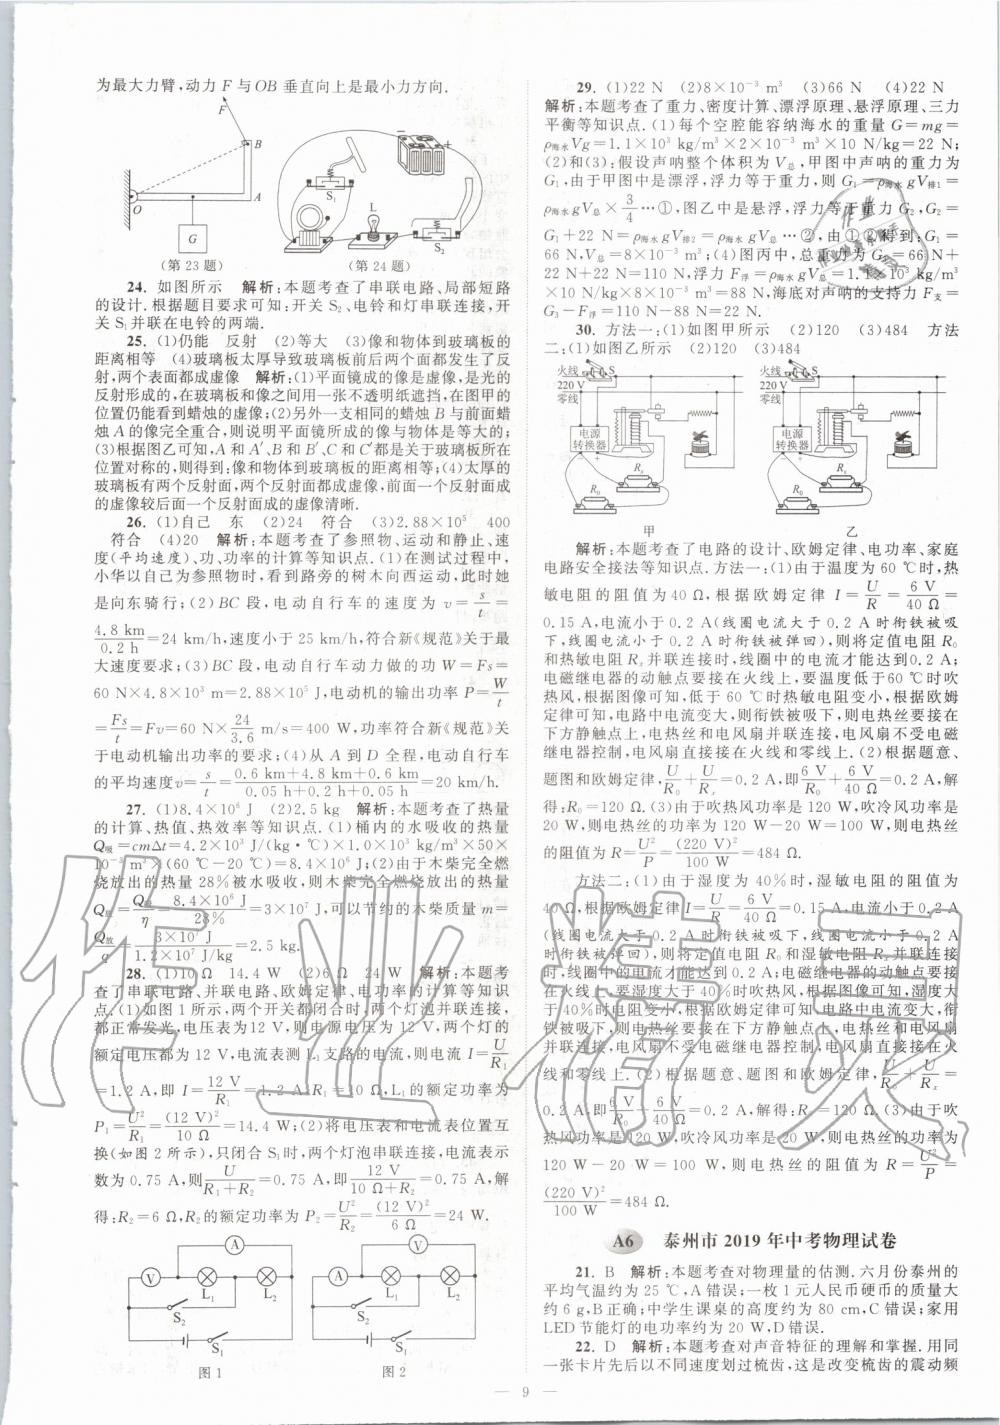 为最大力臂,动力 F 与 OB 垂直向上是最小力方向.
F
B
O
A
G
(第 23 题)
S₁
L
S₂
(第 24 题)
24. 如图所示 解析:本题考查了串联电路、局部短路
的设计.根据题目要求可知:开关 S₂、电铃和灯串联连接,开
关 S₁ 并联在电铃的两端.
25. (1)仍能 反射 (2)等大 (3)像和物体到玻璃板的
距离相等 (4)玻璃板太厚导致玻璃板前后两个面都发生了反
射,两个表面都成虚像 解析:(1)平面镜成的像是虚像,是光的
反射形成的,在玻璃板和像之间用一张不透明纸遮挡,在图甲的
位置仍能看到蜡烛的虚像;(2)另外一支相同的蜡烛 B 与前面蜡
烛 A 的像完全重合,则说明平面镜所成的像与物体是等大的;
(3)根据图乙可知,A和 A′、B和 B′、C和 C′都是关于玻璃所在
位置对称的,则得到:像和物体到玻璃板的距离相等;(4)太厚的
玻璃板有两个反射面,两个反射面都成虚像,前面一个反射面成
的虚像较后面一个反射面成的虚像清晰.
26. (1)自己 东 (2)24 符合 (3)2.88×10⁵ 400
符合 (4)20 解析:本题考查了参照物、运动和静止、速
度(平均速度)、功、功率的计算等知识点.(1)在测试过程中,
小华以自己为参照物时,看到路旁的树木向西运动,此时她
是向东骑行;(2)BC 段,电动自行车的速度为 v=s/t=
4.8 km/0.2 h=24 km/h,速度小于 25 km/h,符合新《规范》关于最
大速度要求;(3)BC 段,电动自行车动力做的功 W=Fs=
60 N×4.8×10³ m=2.88×10⁵ J,电动机的输出功率 P=W/t
=Fs/t=Fv=60 N×24/3.6 m/s=400 W,功率符合新《规范》关
于电动机输出功率的要求;(4)从 A 到 D 全程,电动自行车
的平均速度v=s/t=(0.6 km+4.8 km+0.6 km)/(0.05 h+0.2 h+0.05 h)=20 km/h.
27. (1)8.4×10⁶ J (2)2.5 kg 解析:本题考查了热量
的计算、热值、热效率等知识点.(1)桶内的水吸收的热量
Q吸=cmΔt=4.2×10³ J/(kg·℃)×1.0×10³ kg/m³×50×
10⁻³ m³×(60 ℃-20 ℃)=8.4×10⁶ J;(2)由于木柴完全燃
烧放出的热量 28%被水吸收,则木柴完全燃烧放出的热量
Q放=Q吸/η=8.4×10⁶ J/28%=3×10⁷ J,可以节约的木柴质量 m=
Q放/q=3×10⁷ J/1.2×10⁷ J/kg=2.5 kg.
28. (1)10 Ω 14.4 W (2)6 Ω 24 W 解析:本题考
查了串联电路、并联电路、欧姆定律、电功率的计算等知识
点.(1)如图 1 所示,两个开关都闭合时,两个灯泡并联连接,
都正常发光,电压表为 12 V,则电源电压为 12 V,两个灯的
额定电压都为 12 V,电流表测 L₁支路的电流,则电流 I=U/R₁
=1.2 A,即 I=12 V/R₁=1.2 A,R₁=10 Ω,L₁的额定功率为
P₁=U²/R₁=(12 V)²/10 Ω=14.4 W;(2)将电压表和电流表位置互
换(如图 2 所示),只闭合 S₁时,两个灯泡串联连接,电流表示
数为 0.75 A,则U/(R₁+R₂)=0.75 A,即12 V/(10 Ω+R₂)=0.75 A,解
得:R₂=6 Ω,R₂的额定功率为 P₂=U²/R₂=(12 V)²/6 Ω=24 W.
A
V
L₁
L₂
S₂
S₁
图 1
V
A
L₁
L₂
S₂
S₁
图 2
29. (1)22 N (2)8×10⁻³ m³ (3)66 N (4)22 N
解析:本题考查了重力、密度计算、漂浮原理、悬浮原理、三力
平衡等知识点.(1)每个空腔能容纳海水的重量 G=mg=
ρ海水Vg=1.1×10³ kg/m³×2×10⁻³ m³×10 N/kg=22 N;
(2)和(3):假设声呐整个体积为 V总,甲图中声呐的重力为
G₁,由于甲图中是漂浮,浮力等于重力,则 G₁=ρ海水gV排1=
ρ海水gV总×3/4…①,图乙中是悬浮,浮力等于重力 G₂,G₂=
G₁+22 N=ρ海水gV排2=ρ海水gV总…②,由①②得到:G₁=
66 N,V总=8×10⁻³ m³;(4)图丙中,总重力为 G₃=66 N+
22 N+22 N=110 N,浮力 F浮=ρ海水gV总=1.1×10³ kg/m³
×10 N/kg×8×10⁻³ m³=88 N,海底对声呐的支持力 F支=
G₃-F浮=110 N-88 N=22 N.
30. 方法一:(1)如图甲所示 (2)120 (3)484 方法
二:(1)如图乙所示 (2)120 (3)484
火线
S
220 V
零线
电源
转换器
R₀
甲
火线
S
220 V
零线
电源
转换器
R₀
乙
解析:本题考查了电路的设计、欧姆定律、电功率、家庭
电路安全接法等知识点.方法一:(1)由于温度为 60 ℃时,热
敏电阻的阻值为 40 Ω,根据欧姆定律 I=U/R=6 V/40 Ω=
0.15 A,电流小于 0.2 A(线圈电流大于 0.2 A 时衔铁被吸
下,线圈电流小于 0.2 A 时衔铁被弹回),则将定值电阻 R₀
和热敏电阻 Rₓ并联连接时,线圈中的电流才能达到 0.2 A;
电磁继电器的动触点要接在火线上,要温度低于 60 ℃时吹
热风,根据图像可知,低于 60 ℃时热敏电阻变小,根据欧姆
定律可知,电路中电流变大,则衔铁被吸下,则电热丝要接在
下方静触点上,电热丝和电风扇并联连接,电风扇不受电磁
继电器控制,电风扇直接接在火线和零线上.(2)根据题意、
题图和欧姆定律,U/R₀+U/Rₓ=0.2 A,即6 V/R₀+6 V/40 Ω=0.2 A,解
得:R₀=120 Ω.(3)由于吹热风功率是 120 W,吹冷风功率是
20 W,则电热丝的功率为 120 W-20 W=100 W,则电热丝
的阻值为 R=U²/P=(220 V)²/100 W=484 Ω.
方法二:(1)由于湿度为 40%时,湿敏电阻的阻值为
40 Ω,根据欧姆定律 I=U/R=6 V/40 Ω=0.15 A,电流小于 0.2 A
(线圈电流大于 0.2 A 时衔铁被吸下,线圈电流小于 0.2 A
时衔铁被弹回),则将定值电阻 R₀和湿敏电阻并联连接
时,线圈中的电流才能达到 0.2 A;电磁继电器的动触点要接
在火线上,要湿度大于 40%时吹热风,根据图像可知,湿度大
于 40%时电阻变小,根据欧姆定律可知,电路中电流变大,衔
铁被吸下,则电热丝要接在下方静触点上,电热丝和电风扇
并联连接,电风扇不受电磁继电器控制,电风扇直接接在火
线和零线上.(2)根据题意、题图和欧姆定律,U/R₀+U/Rₓ=
0.2 A,即6 V/R₀+6 V/40 Ω=0.2 A,解得:R₀=120 Ω.(3)由于吹
热风功率是 120 W,吹冷风功率是 20 W,则电热丝的功率为
120 W-20 W=100 W,则电热丝的阻值为 R=U²/P=
(220 V)²/100 W=484 Ω.
A6 泰州市 2019 年中考物理试卷
21. B 解析:本题考查对物理量的估测.六月份泰州的
平均气温约为 25 ℃,A 错误;一枚 1 元人民币硬币的质量大
约 6 g,B 正确;中学生课桌的高度约为 80 cm,C 错误;家用
LED 节能灯的电功率约为 20 W,D 错误.
22. D 解析:本题考查对声音特征的理解和掌握.用同
一张卡片先后以不同速度划过梳齿,这是改变梳齿的震动频
— 9 —
作业精灵